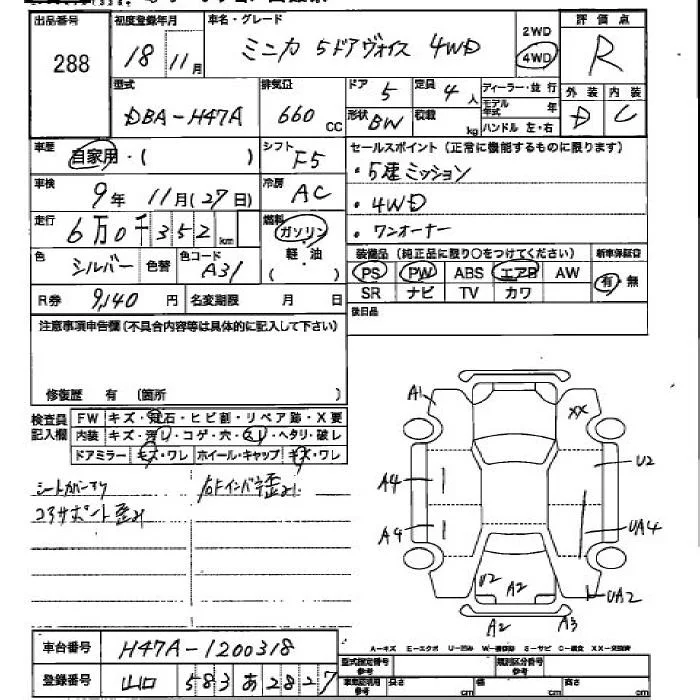 出品番号
288
初度登録年月
18 11月
車名・グレード
ミニカ 5ドアヴォイス 4WD
2WD
4WD
評価点
R
型式
DBA-H47A
排気量
660 cc
ドア
5
形状
BW
定員
4 人
積載
kg
ディーラー・並行
モデル年式 年
ハンドル 左・右
外装
D
内装
C
車歴
自家用・( )
シフト
F5
車検
9年 11月(27日)
冷房
AC
走行
6万0千352km
燃料
ガソリン
軽・油
( )
色
シルバー
色替
色コード
A31
R券 9,140 円
名変期限 月 日
セールスポイント(正常に機能するものに限ります)
・5速ミッション
・4WD
・ワンオーナー
装備品(純正品に限り〇をつけてください)
PS PW ABS エアB AW
SR ナビ TV カワ
新車保証書
有・無
後日品
注意事項申告欄(不具合内容等は具体的に記入して下さい)
修復歴 有 (箇所 )
検査員記入欄
FW キズ・飛石・ヒビ割・リペア跡・X要
内装 キズ・汚レ・コゲ・穴・スレ・ヘタリ・破レ
ドアミラー キズ・ワレ ホイール・キャップ キズ・ワレ
コアサポート歪み
A1
XX
U2
A4
A4
UA4
U2
A2
UA2
A2
A3
車台番号 H47A-1200318
登録番号 山口 583 あ 2827
A-キズ E-エクボ U-凹み W-補修跡 S-サビ C-腐食 XX-交換済
型式指定番号
参考
類別区分番号
参考
車車証明用
参考
長さ cm
幅 cm
高さ cm